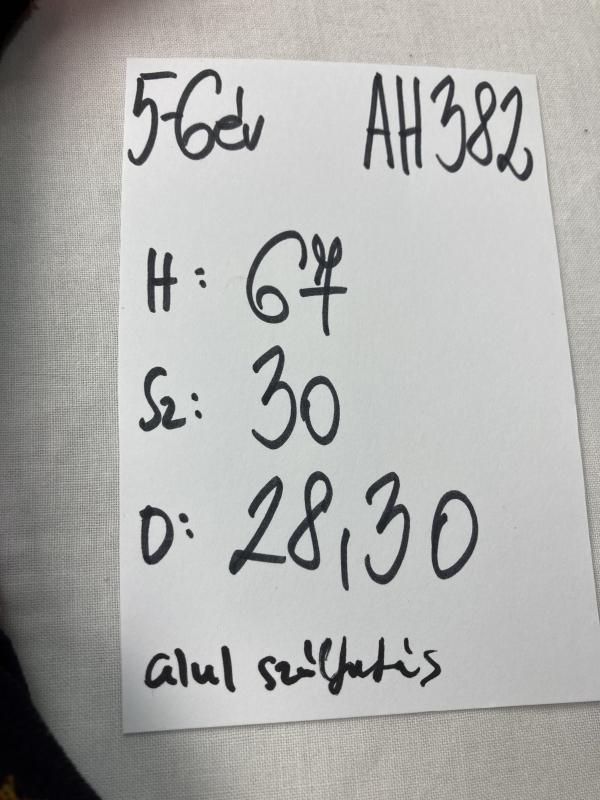 5-6év AH382
H: 67
Sz: 30
D: 28,30
alul szálfutás